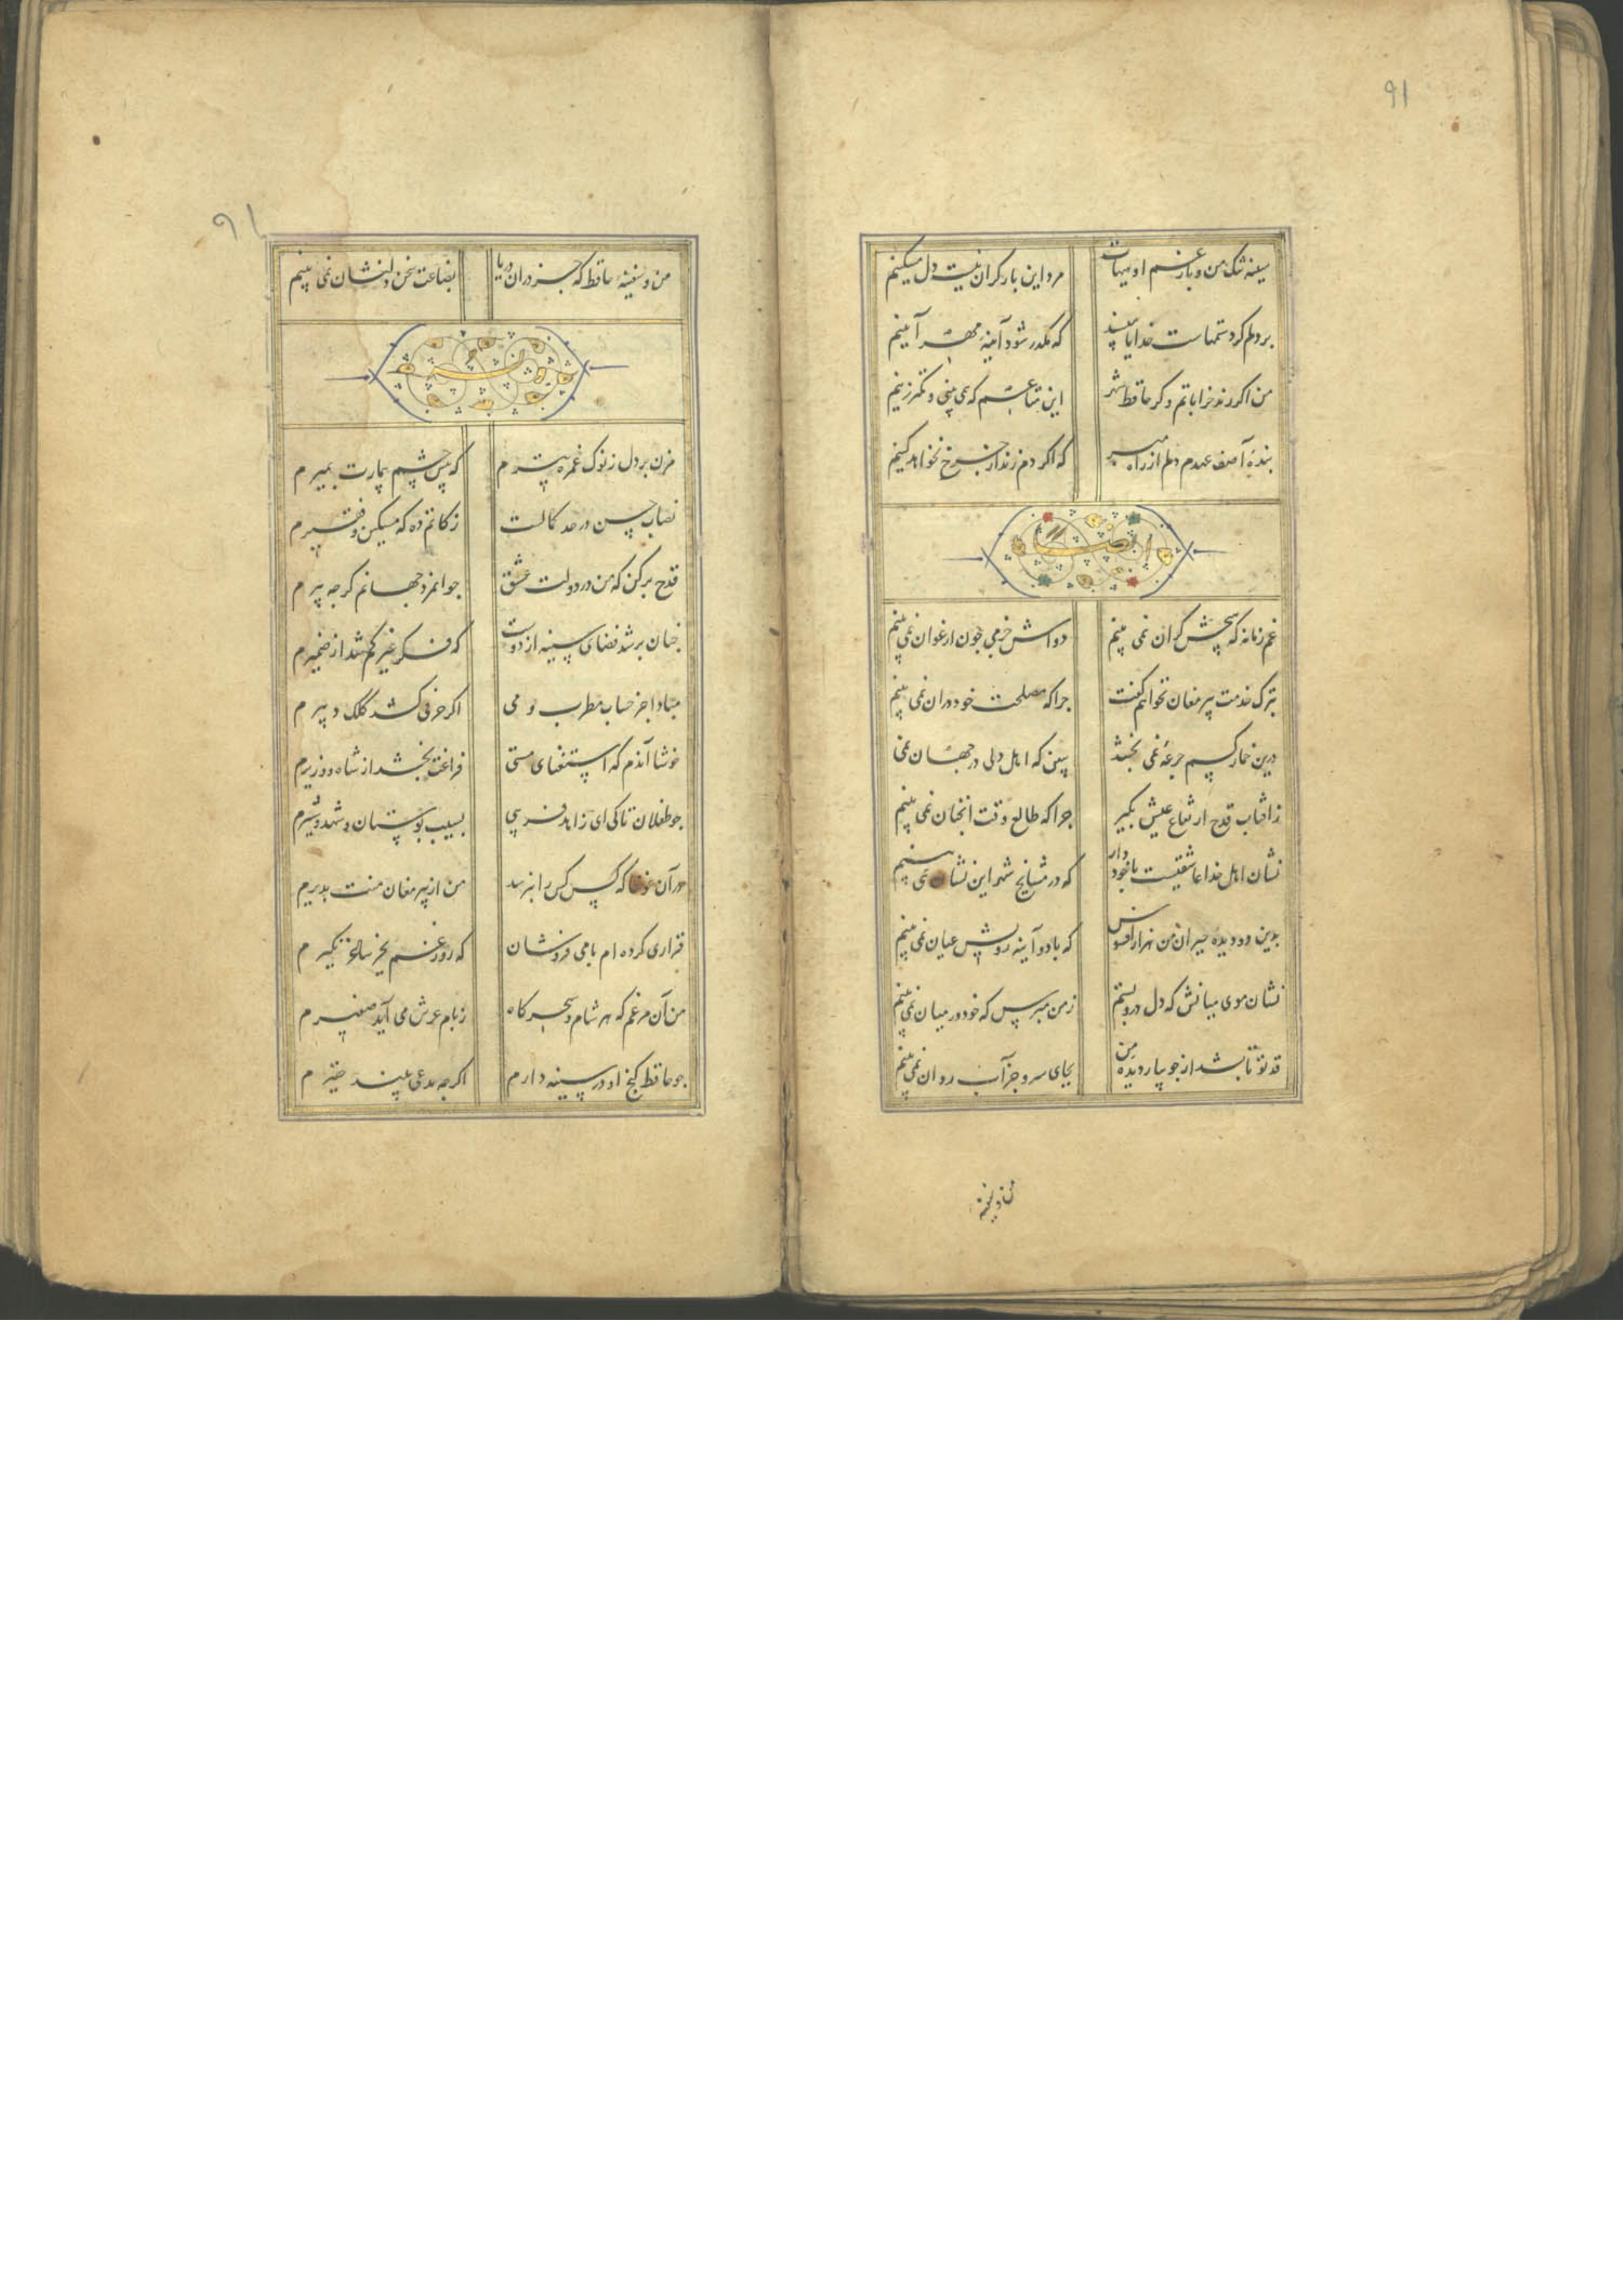 ۹۱
سینه تنک من و بار غم او هیهات مرد این بار کران نیست دل مسکینم
بر دلم کرد ستمهاست خدایا مپسند که مکدر شود آینهٔ مهر آیینم
من اگر رند خراباتم و کر حافظ شهر این متاعم که می بینی و کمتر زینم
بندهٔ آصف عهدم دلم از راه مبر که اگر دم زنم از چرخ بخواهد کینم
ایضا
غم زمانه که هیچش کران نمی بینم دواش جز می چون ارغوان نمی بینم
بترک خدمت پیر مغان نخواهم گفت چرا که مصلحت خود در ان نمی بینم
درین خمار کسم جرعهٔ نمی بخشد ببین که اهل دلی در جهان نمی
ز آفتاب قدح ارتفاع عیش بکیر چرا که طالع وقت انچنان نمی بینم
نشان اهل خدا عاشقیست با خود دار که در مشایخ شهر این نشان نمی بینم
بدین دو دیده حیران من هزار افسوس که با دو آینه رویش عیان نمی بینم
نشان موی میانش که دل درو بستم ز من مپرس که خود در میان نمی بینم
قد تو تا بشد از جویبار دیده من بجای سرو جز آب روان نمی بینم
من و سفینه
۹۱
من و سفینهٔ حافظ که جز در ان دریا بضاعت سخن دلنشان نمی بینم
مزن بر دل ز نوک غمزه تیرم که پیش چشم بیمارت بمیرم
نصاب حسن در حد کمالست زکاتم ده که مسکین و فقیرم
قدح پر کن که من در دولت عشق جوانمرد جهانم کرچه پیرم
چنان پر شد فضای سینه از دوست که فکر غیر کم شد از ضمیرم
مبادا جز حساب مطرب و می اکر حرفی کشد کلک دبیرم
خوشا آندم که استغنای مستی فراغت بخشد از شاه و وزیرم
چو طفلان تا کی ای زاهد فریبی بسیب بوستان و شهد و شیرم
در آن غوغا که کس کس را نپرسد من از پیر مغان منت پذیرم
قراری کرده ام با می فروشان که روز غم بجز ساغر نکیرم
من آن مرغم که هر شام و سحرکاه ز بام عرش می آید صفیرم
چو حافظ کنج او در سینه دارم اکرچه مدعی بیند حقیرم